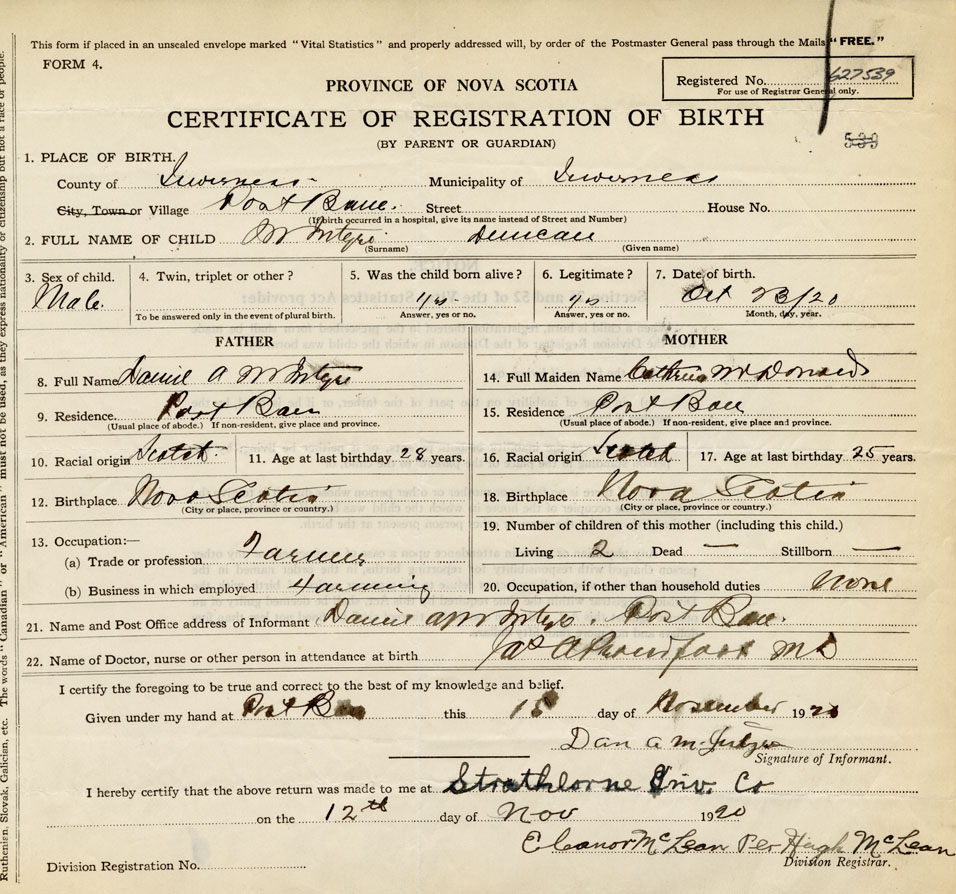 This form if placed in an unsealed envelope marked "Vital Statistics" and properly addressed will, by order of the Postmaster General pass through the Mails "FREE."
FORM 4.
Registered No. 627539
For use of Registrar General only.
PROVINCE OF NOVA SCOTIA
CERTIFICATE OF REGISTRATION OF BIRTH
(BY PARENT OR GUARDIAN)
539
1. PLACE OF BIRTH.
County of Inverness Municipality of Inverness
City, Town or Village Port Ban Street House No.
(If birth occurred in a hospital, give its name instead of Street and Number)
2. FULL NAME OF CHILD McIntyre Duncan
(Surname) (Given name)
3. Sex of child. 4. Twin, triplet or other? 5. Was the child born alive? 6. Legitimate? 7. Date of birth.
Male yes yes Oct 23/20
To be answered only in the event of plural birth. Answer, yes or no. Answer, yes or no. Month, day, year.
FATHER MOTHER
8. Full Name Daniel A McIntyre 14. Full Maiden Name McDonald
9. Residence Port Ban 15. Residence Port Ban
(Usual place of abode.) If non-resident, give place and province. (Usual place of abode.) If non-resident, give place and province.
10. Racial origin Scotch 11. Age at last birthday 28 years. 16. Racial origin Scotch 17. Age at last birthday 25 years.
12. Birthplace Nova Scotia 18. Birthplace Nova Scotia
(City or place, province or country.) (City or place, province or country.)
13. Occupation:— 19. Number of children of this mother (including this child.)
(a) Trade or profession Farmer Living 2 Dead — Stillborn —
(b) Business in which employed farming 20. Occupation, if other than household duties none
21. Name and Post Office address of Informant Daniel A McIntyre. Port Ban.
22. Name of Doctor, nurse or other person in attendance at birth Jas A Proudfoot MD
I certify the foregoing to be true and correct to the best of my knowledge and belief.
Given under my hand at Port Ban this day of November 19
Dan A McIntyre
Signature of Informant.
I hereby certify that the above return was made to me at Strathlorne Inv. Co
on the 12th day of Nov 1920
Eleanor McLean Per Hugh McLean
Division Registrar.
Division Registration No.
Ruthenian, Slovak, Galician, etc. The words "Canadian" or "American" must not be used, as they express nationality or citizenship but not a race or people.